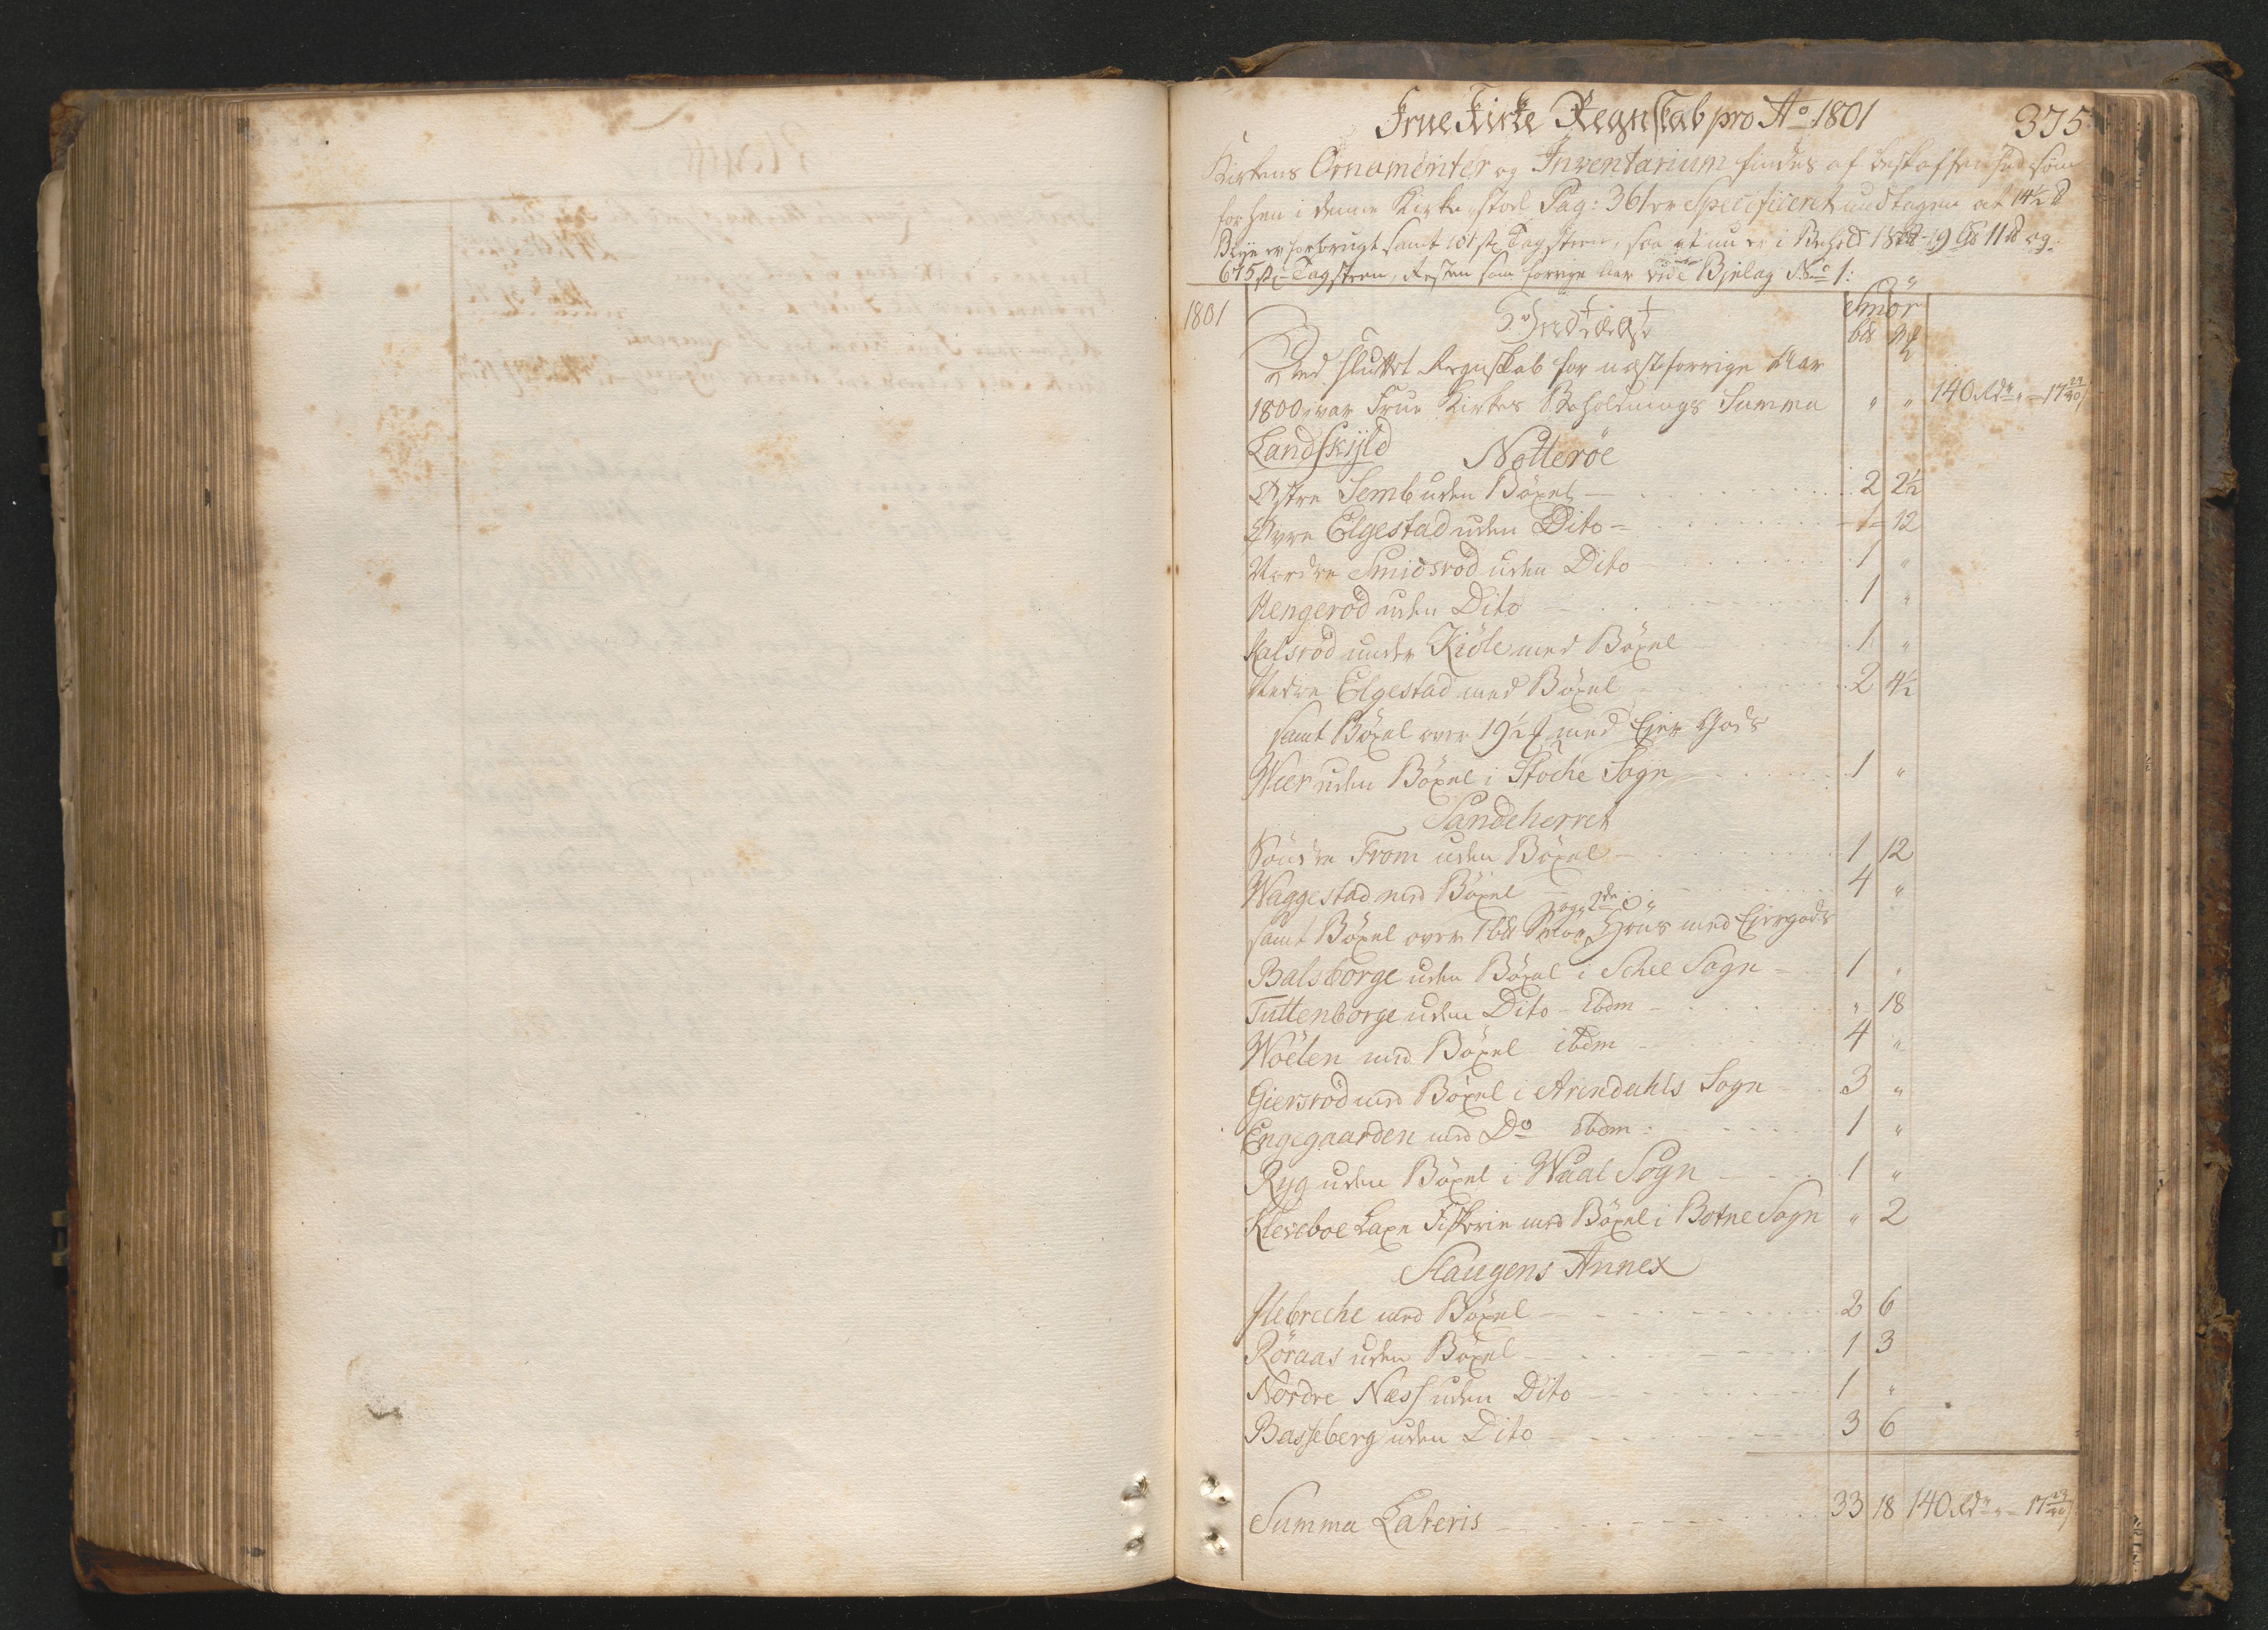 Frue Kirke Regnskab pro Ao 1801
375
Kirkens Ornamenter og Inventarium findes af beskaffenhed som
forhen i denne Kirke stoel Pag: 361 er Specificeret undtagen at 14½ ℔
Blye er forbrugt samt 101 st Tagsteen, saa at nu er i Behold 9 11 ℔ og
675 st Tagsteen, Resten som forrige Aar vide Bielag No 1:
1801
Indtægt
Smör
Ved sluttet Regnskab for næstforrige Aar
1800 var Frue Kirkes Beholdnings Summa " " 140 Rd " 17 23/20
Landskyld Nøtterøe
Østre Semb uden Böxel 2 2½
Øvre Elgestad uden Dito 1 12
Nordre Smidsrød uden Dito 1 "
Hengerød uden Dito 1 "
Kalsrød under Kiöle med Böxel 1 "
Nedre Elgestad med Böxel 2 4½
samt Böxel over 19½ med Eier Gods
Wier uden Böxel i Stoche Sogn 1 "
Sandeherret
Söndre From uden Böxel 1 12
Waggestad med Böxel 4 "
og 2de
samt Böxel over 1 Smör, Huus med Eiergods
Balsborge uden Böxel i Schee Sogn 1 "
Tuttenborge uden Dito ibdm " 18
Wöelen med Böxel ibdm 4 "
Giersrød med Böxel i Arendahls Sogn 3 "
Engegaarden med Do ibdm 1 "
Ryg uden Böxel i Waal Sogn 1 "
Kleveboe Laxe Fiskerie med Böxel i Botne Sogn " 2
Slaugens Annex
Ilebreche med Böxel 2 6
Röraas uden Böxel 1 3
Nordre Næss uden Dito 1 "
Basseberg uden Dito 3 6
Summa Lateris 33 18 140 Rd " 17 23/20